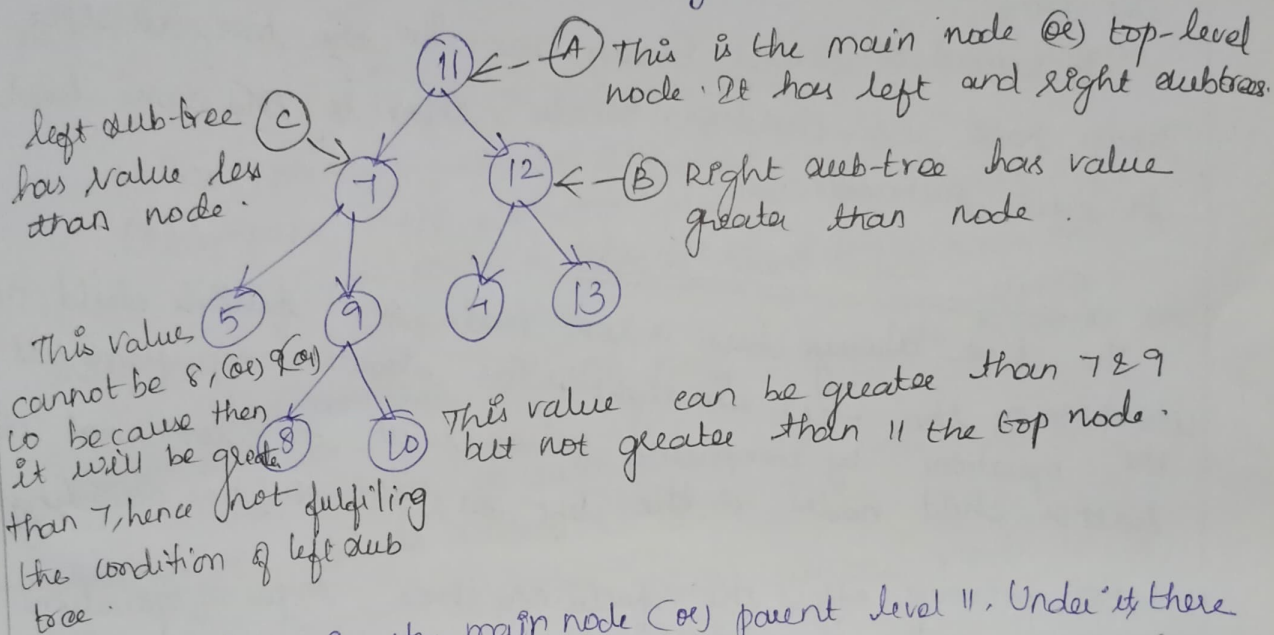 11 A This is the main node (or) top-level
node. It has left and right subtrees.
left sub-tree C
has value less
than node.
7 12 B Right sub-tree has value
greater than node.
5 9 4 13
This value
cannot be 8, (or) 9 (or)
10 because then
it will be greater
than 7, hence not fulfiling
the condition of left sub
tree.
8 10
This value can be greater than 7 & 9
but not greater than 11 the top node.
main node (or) parent level 11. Under it there